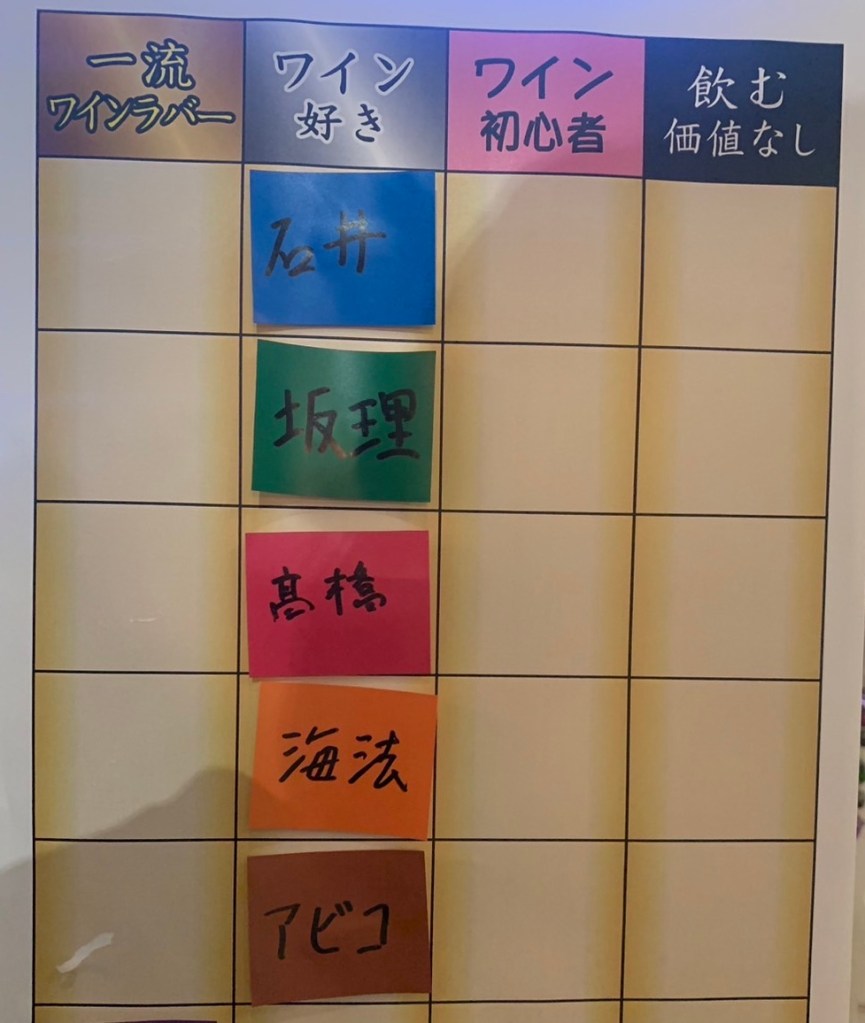 一流
ワインラバー
ワイン
好き
ワイン
初心者
飲む
価値なし
石井
坂理
髙橋
海法
アビコ